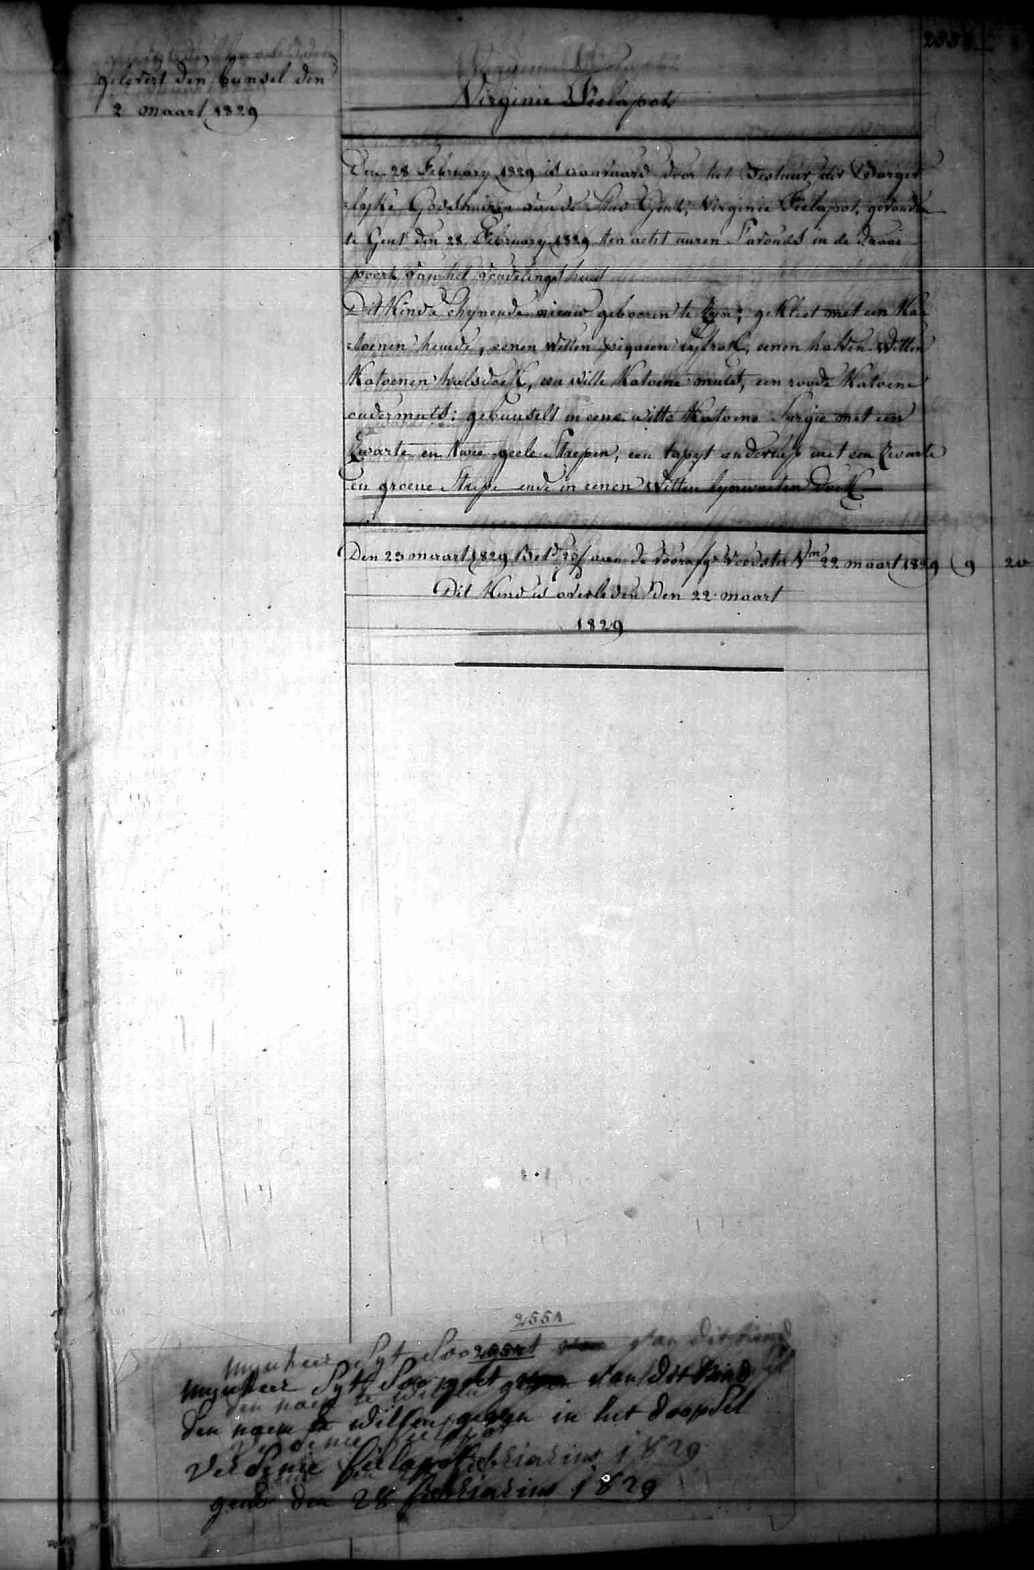 gelevert den bunsel den
2 maart 1829
2551
Virginie Pielapot
Den 28 February 1829 is aanvaard door het Bestuur der Burger
lyke Godshuizen van de Stad Gent, Virginie Pielapot, gevonden
te Gent den 28 February 1829 ten acht uuren s'avonds in de draai
poort van het vondelingshuis
Dit kind schynende nieuw gebooren te zyn; gekleet met een ka-
toenen hemde, eenen witten lyfrok, eenen witten
katoenen halsdoek, een witte katoene muts, een roode katoene
ondermuts: gebunselt in eene witte katoene Sargie met een
zwarte en twee geele Strepen, een tapyt met een zwarte
en groene Strepe ende in eenen witten lynwaeten doek
Den 23 maart 1829 aan de voedster 22 maart 1829 9 20
Dit kind is overleden den 22 maart
1829
2551
mynheer Syt Soo goet van dit kind
den naem te willen geven in het doopsel
Versenie pielapot
gent den 28 febriarius 1829